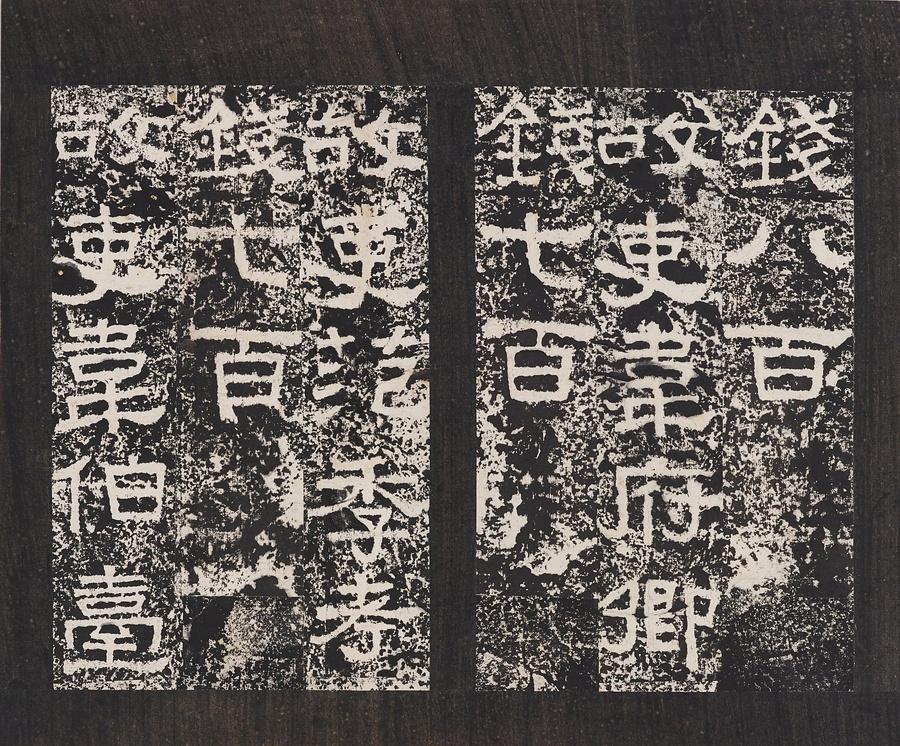 錢八百
故吏韋府卿
錢七百
故吏范季考
錢七百
故吏韋伯臺